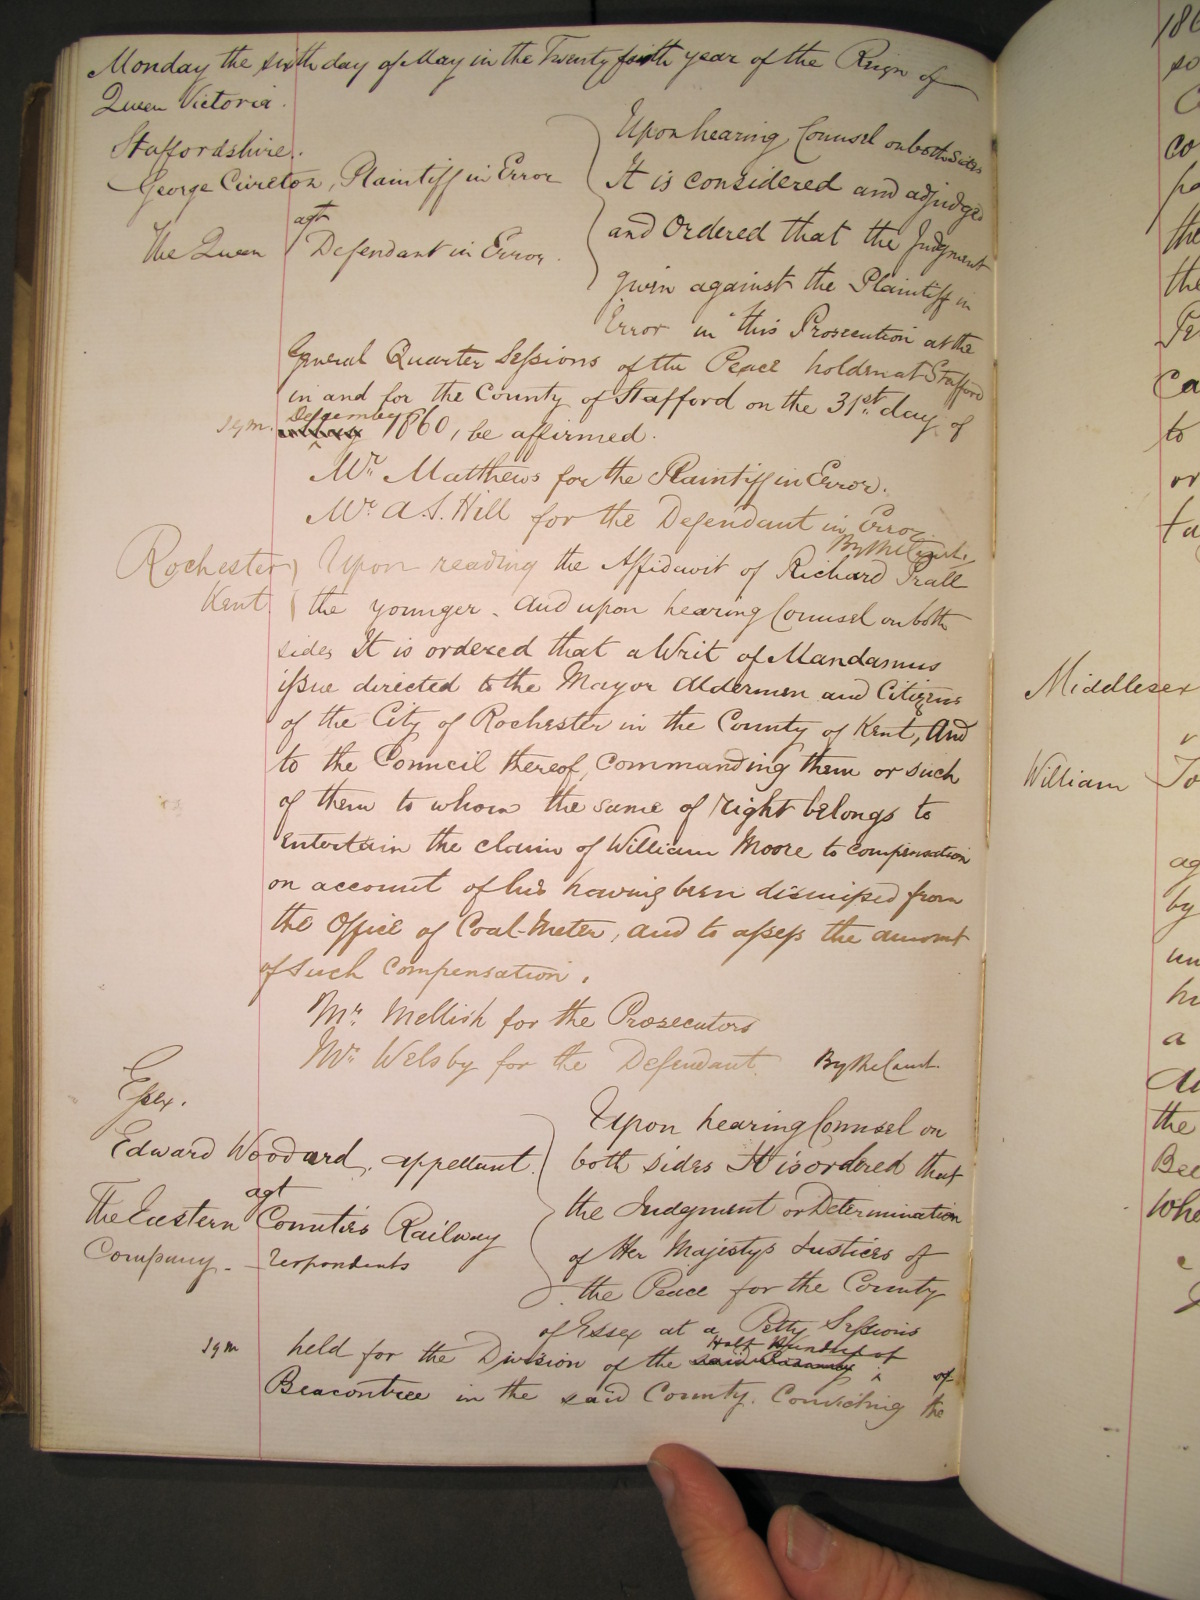 Monday the sixth day of May in the Twenty fourth year of the Reign of
Queen Victoria.
Staffordshire.
George Cureton, Plaintiff in Error
agt
The Queen Defendant in Error.
Upon hearing Counsel on both sides
It is considered and adjudged
and Ordered that the Judgment
given against the Plaintiff in
Error in this Prosecution at the
General Quarter Sessions of the Peace holden at Stafford
in and for the County of Stafford on the 31st day of
December 1860, be affirmed.
Mr. Matthews for the Plaintiff in Error.
Mr. A. S. Hill for the Defendant in Error
By the Court.
Rochester
Kent
Upon reading the Affidavit of Richard Prall
the younger. And upon hearing Counsel on both
sides It is ordered that a Writ of Mandamus
issue directed to the Mayor Aldermen and Citizens
of the City of Rochester in the County of Kent, And
to the Council thereof, commanding them or such
of them to whom the same of right belongs to
entertain the claim of William Moore to compensation
on account of his having been dismissed from
the Office of Coal-Meter, and to assess the amount
of such compensation.
Mr. Mellish for the Prosecutors
Mr. Welsby for the Defendant. By the Court.
Essex.
Edward Woodard, appellant.
agt
The Eastern Counties Railway
Company - respondents
Upon hearing Counsel on
both sides It is ordered that
the Judgment or Determination
of Her Majestys Justices of
the Peace for the County
of Essex at a Petty Sessions
Half Hundred of
held for the Division of the said of
Beacontree in the said County. Convicting the
Middlesex
William To
186
so
co
the
the
Ca
to
or
ta
ag
by
un
a
the
Bec
Whe